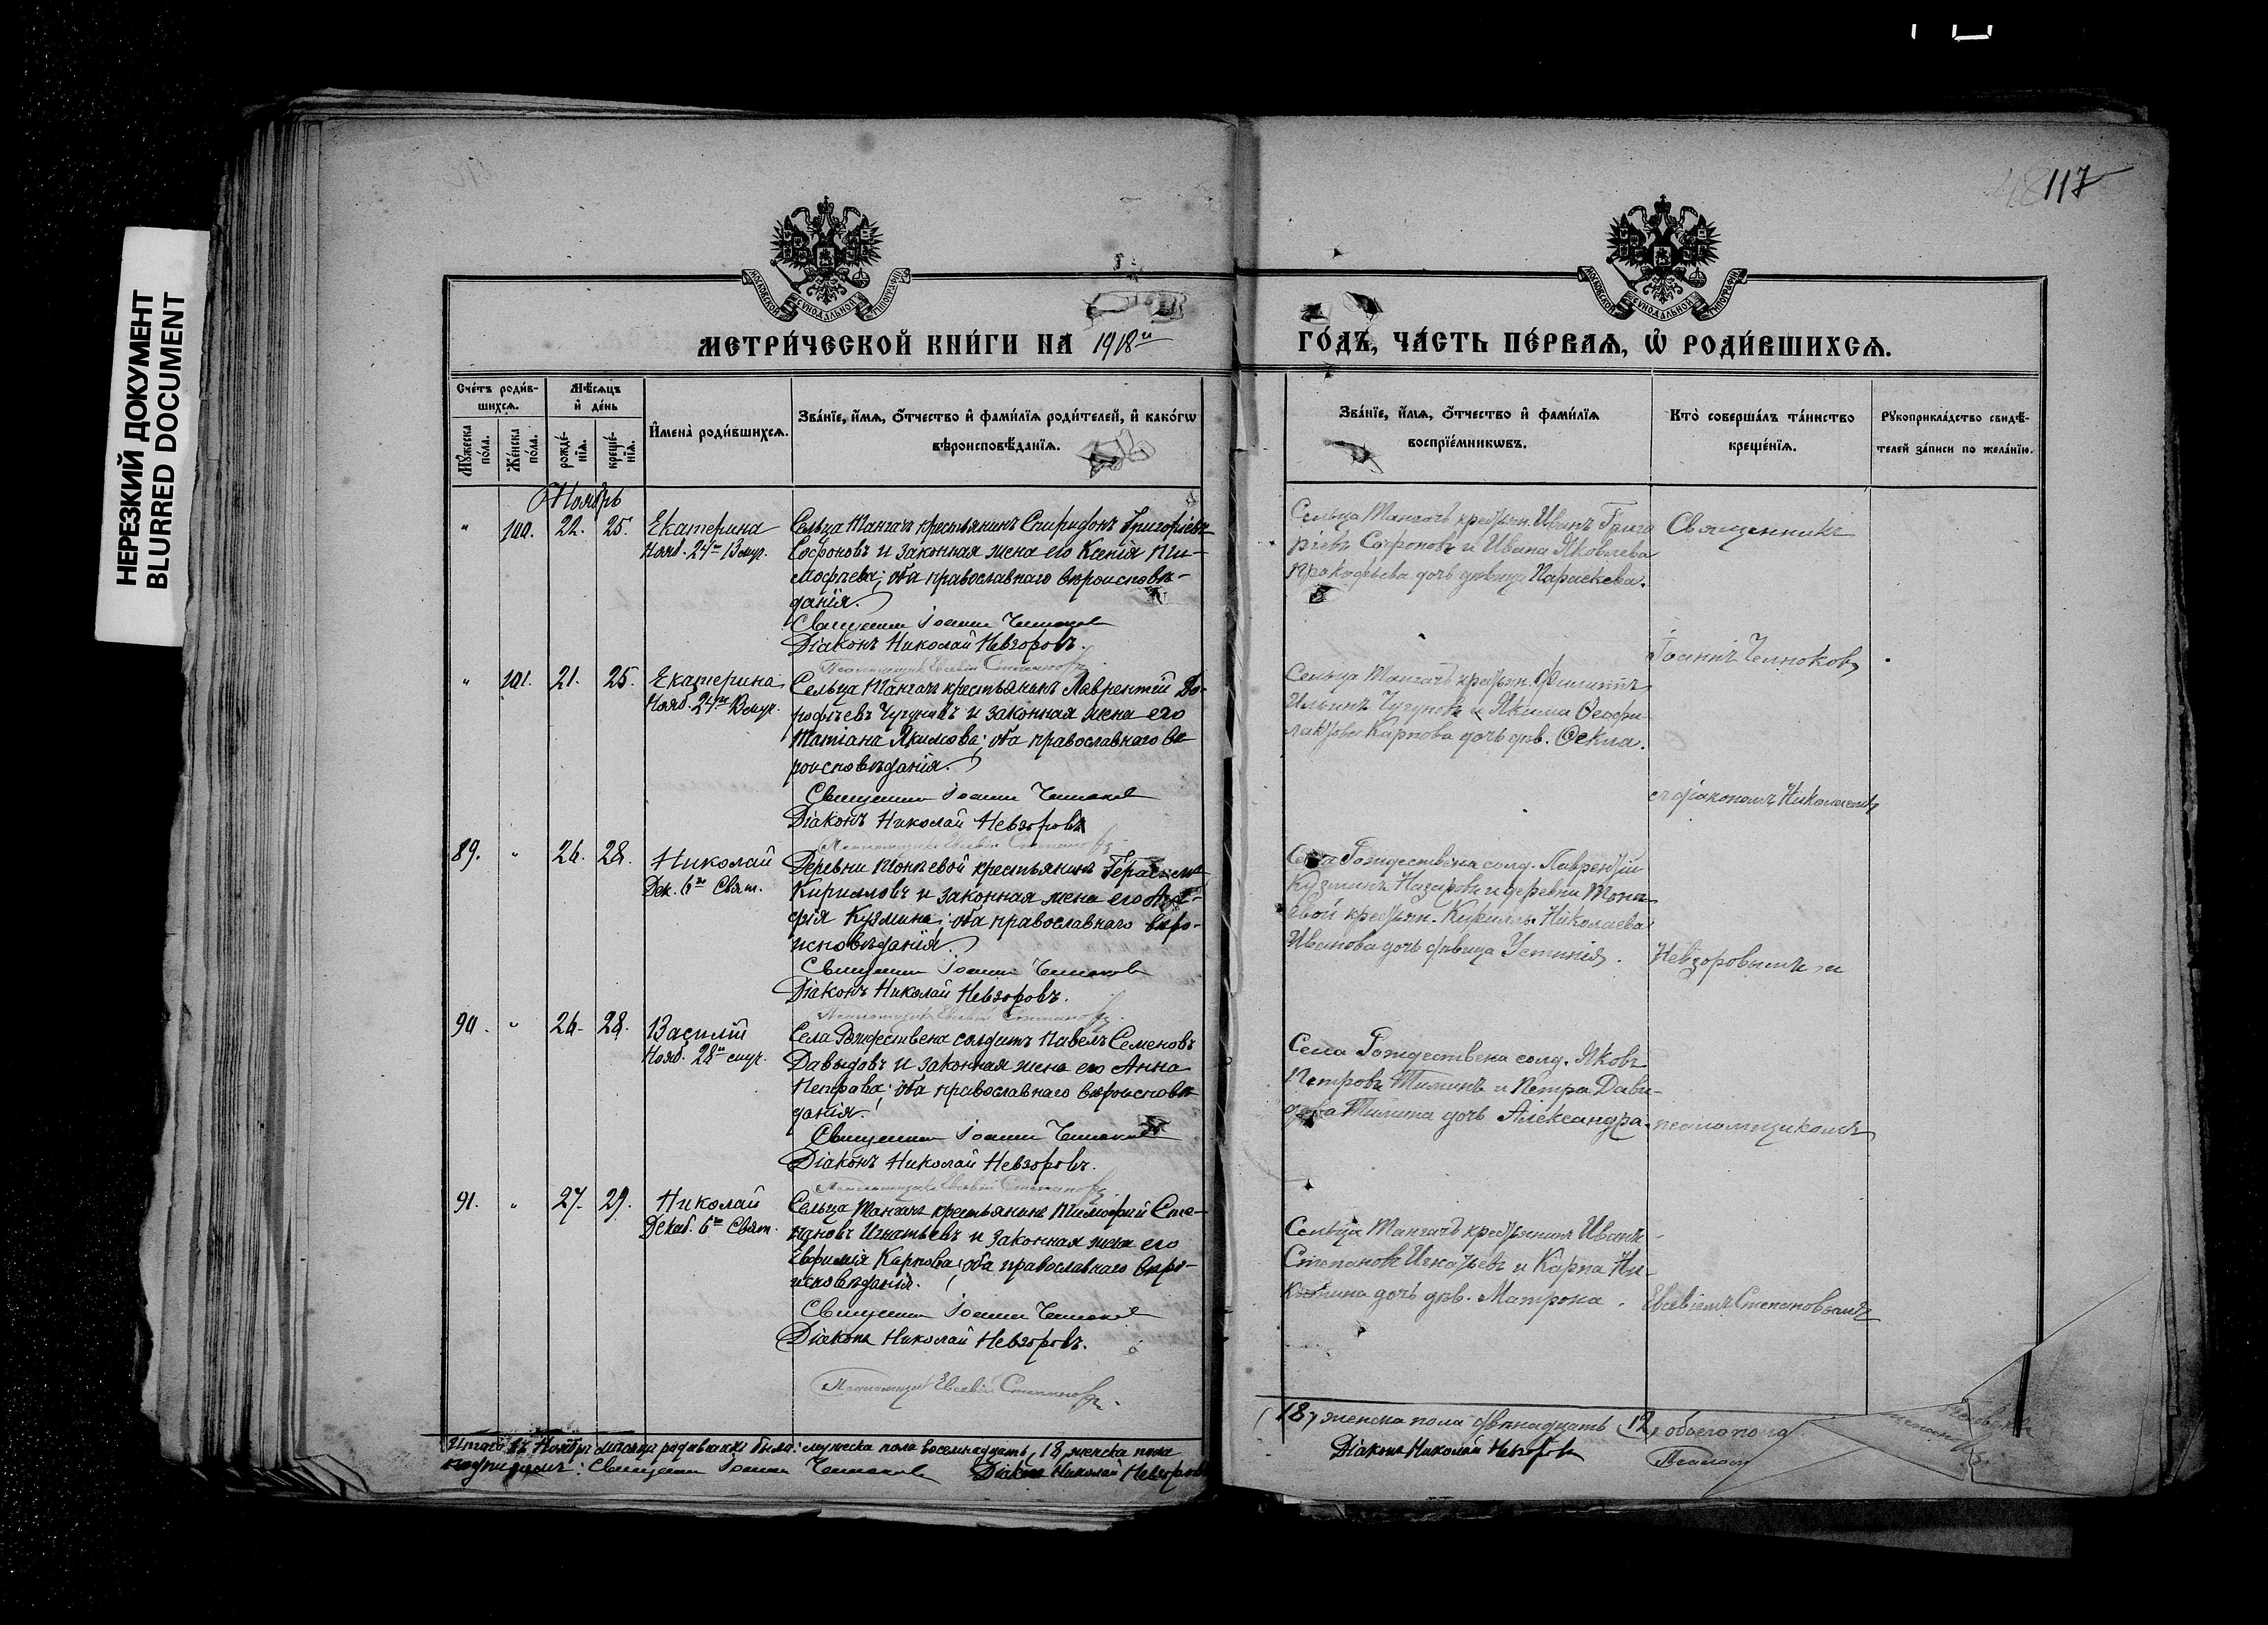 НЕРЕЗКИЙ ДОКУМЕНТ
BLURRED DOCUMENT
117
МОСКОВСКОЙ СУНОДАЛЬНОЙ ТИПОГРАФІИ
МОСКОВСКОЙ СУНОДАЛЬНОЙ ТИПОГРАФІИ
МЕТРИ́ЧЕСКОЙ КНИ́ГИ НА 1918й
ГО́ДЪ, ЧА́СТЬ ПЕ́РВАѦ, Ѽ РОДИ́ВШИХСѦ.
Сче́тъ роди́в-
шихсѧ.
Мꙋ́жеска по́ла.
Же́нска по́ла.
Мѣ́сѧцъ
и҆ де́нь
рожде́-нїѧ.
креще́-нїѧ.
И҆мена̀ роди́вшихсѧ.
Зва́нїе, и҆́мѧ, ѻ҆́тчество и҆ фами́лїѧ роди́телей, и҆ како́гѡ
вѣроисповѣ́данїѧ.
Зва́нїе, и҆́мѧ, ѻ҆́тчество и҆ фами́лїѧ
воспрїе́мникѡвъ.
Кто̀ соверша́лъ та́инство
креще́нїѧ.
Рꙋкоприкла́дство свидѣ́-
телей за́писи по жела́нїю.
Ноябрь
" 100. 22. 25. Екатерина
Нояб. 24го Вмуч.
Сельца Мангачъ крестьянинъ Спиридонъ Григорьевъ
Софроновъ и законная жена его Ксенія Ти-
мофаева; оба православнаго вѣроисповѣ-
данія.
Священникъ Іоаннъ
Діаконъ Николай Невзоровъ.
Псаломщикъ Евсевій Степановъ
Сельца Мангачъ крестьян. Иванъ Григо
рьевъ Софроновъ и Ивана Яковлева
Прокофьева дочь дѣвица Параскева.
Священникъ
" 101. 21. 25. Екатерина
Нояб. 24го Вмуч.
Сельца Мангачъ крестьянинъ Лаврентій До-
рофѣевъ Чугуновъ и законная жена его
Татіана Якимова; оба православнаго вѣ
роисповѣданія.
Священникъ Іоаннъ
Діаконъ Николай Невзоровъ
Псаломщикъ Евсевій Степановъ
Сельца Мангачъ крестьян. Филиппъ
Ильинъ Чугуновъ и Якима Ѳеофи-
лактова Карпова дочь дѣв. Ѳекла.
Іоаннъ
съ діакономъ Николаемъ
89. " 26. 28. Николай
Дек. 6го Свят.
Деревни крестьянинъ Герасимъ
Кирилловъ и законная жена его
Кузмина; оба православнаго вѣро-
исповѣданія.
Священникъ Іоаннъ
Діаконъ Николай Невзоровъ.
Псаломщикъ Евсевій Степановъ
Села Рождествена солд. Лаврентій
Кузминъ Назаровъ и деревни
крестьян. Кирилла Николаева
Иванова дочь дѣвица Устинія.
Невзоровымъ и
90. " 26. 28. Василій
Нояб. 28го смуч.
Села Рождествена солдатъ Павелъ Семеновъ
Давыдовъ и законная жена его Анна
Петрова; оба православнаго вѣроисповѣ
данія.
Священникъ Іоаннъ
Діаконъ Николай Невзоровъ.
Псаломщикъ Евсевій Степановъ.
Села Рождествена солд. Яковъ
Петровъ Тиминъ и Петра Давы-
дова Тимина дочь Александра.
псаломщикомъ
91. " 27. 29. Николай
Декаб. 6го Свят.
Сельца Мангачъ крестьянинъ Тимофей Сте-
пановъ Игнатьевъ и законная жена его
Евфимія Карпова; оба православнаго вѣро-
исповѣданія.
Священникъ Іоаннъ
Діаконъ Николай Невзоровъ.
Псаломщикъ Евсевій Степановъ.
Сельца Мангачъ крестьянинъ Иванъ
Степановъ Игнатьевъ и Карпа Ни-
китина дочь дѣв. Матрона.
Евсевіемъ Степановымъ
Итого въ Ноябрѣ мѣсяцѣ родившихся было: мужеска пола восемнадцать, 18, женска пола
Священникъ Іоаннъ Діаконъ Николай Невзоровъ
(18) женска пола двѣнадцать (12) обоего пола
Діаконъ Николай Невзоровъ